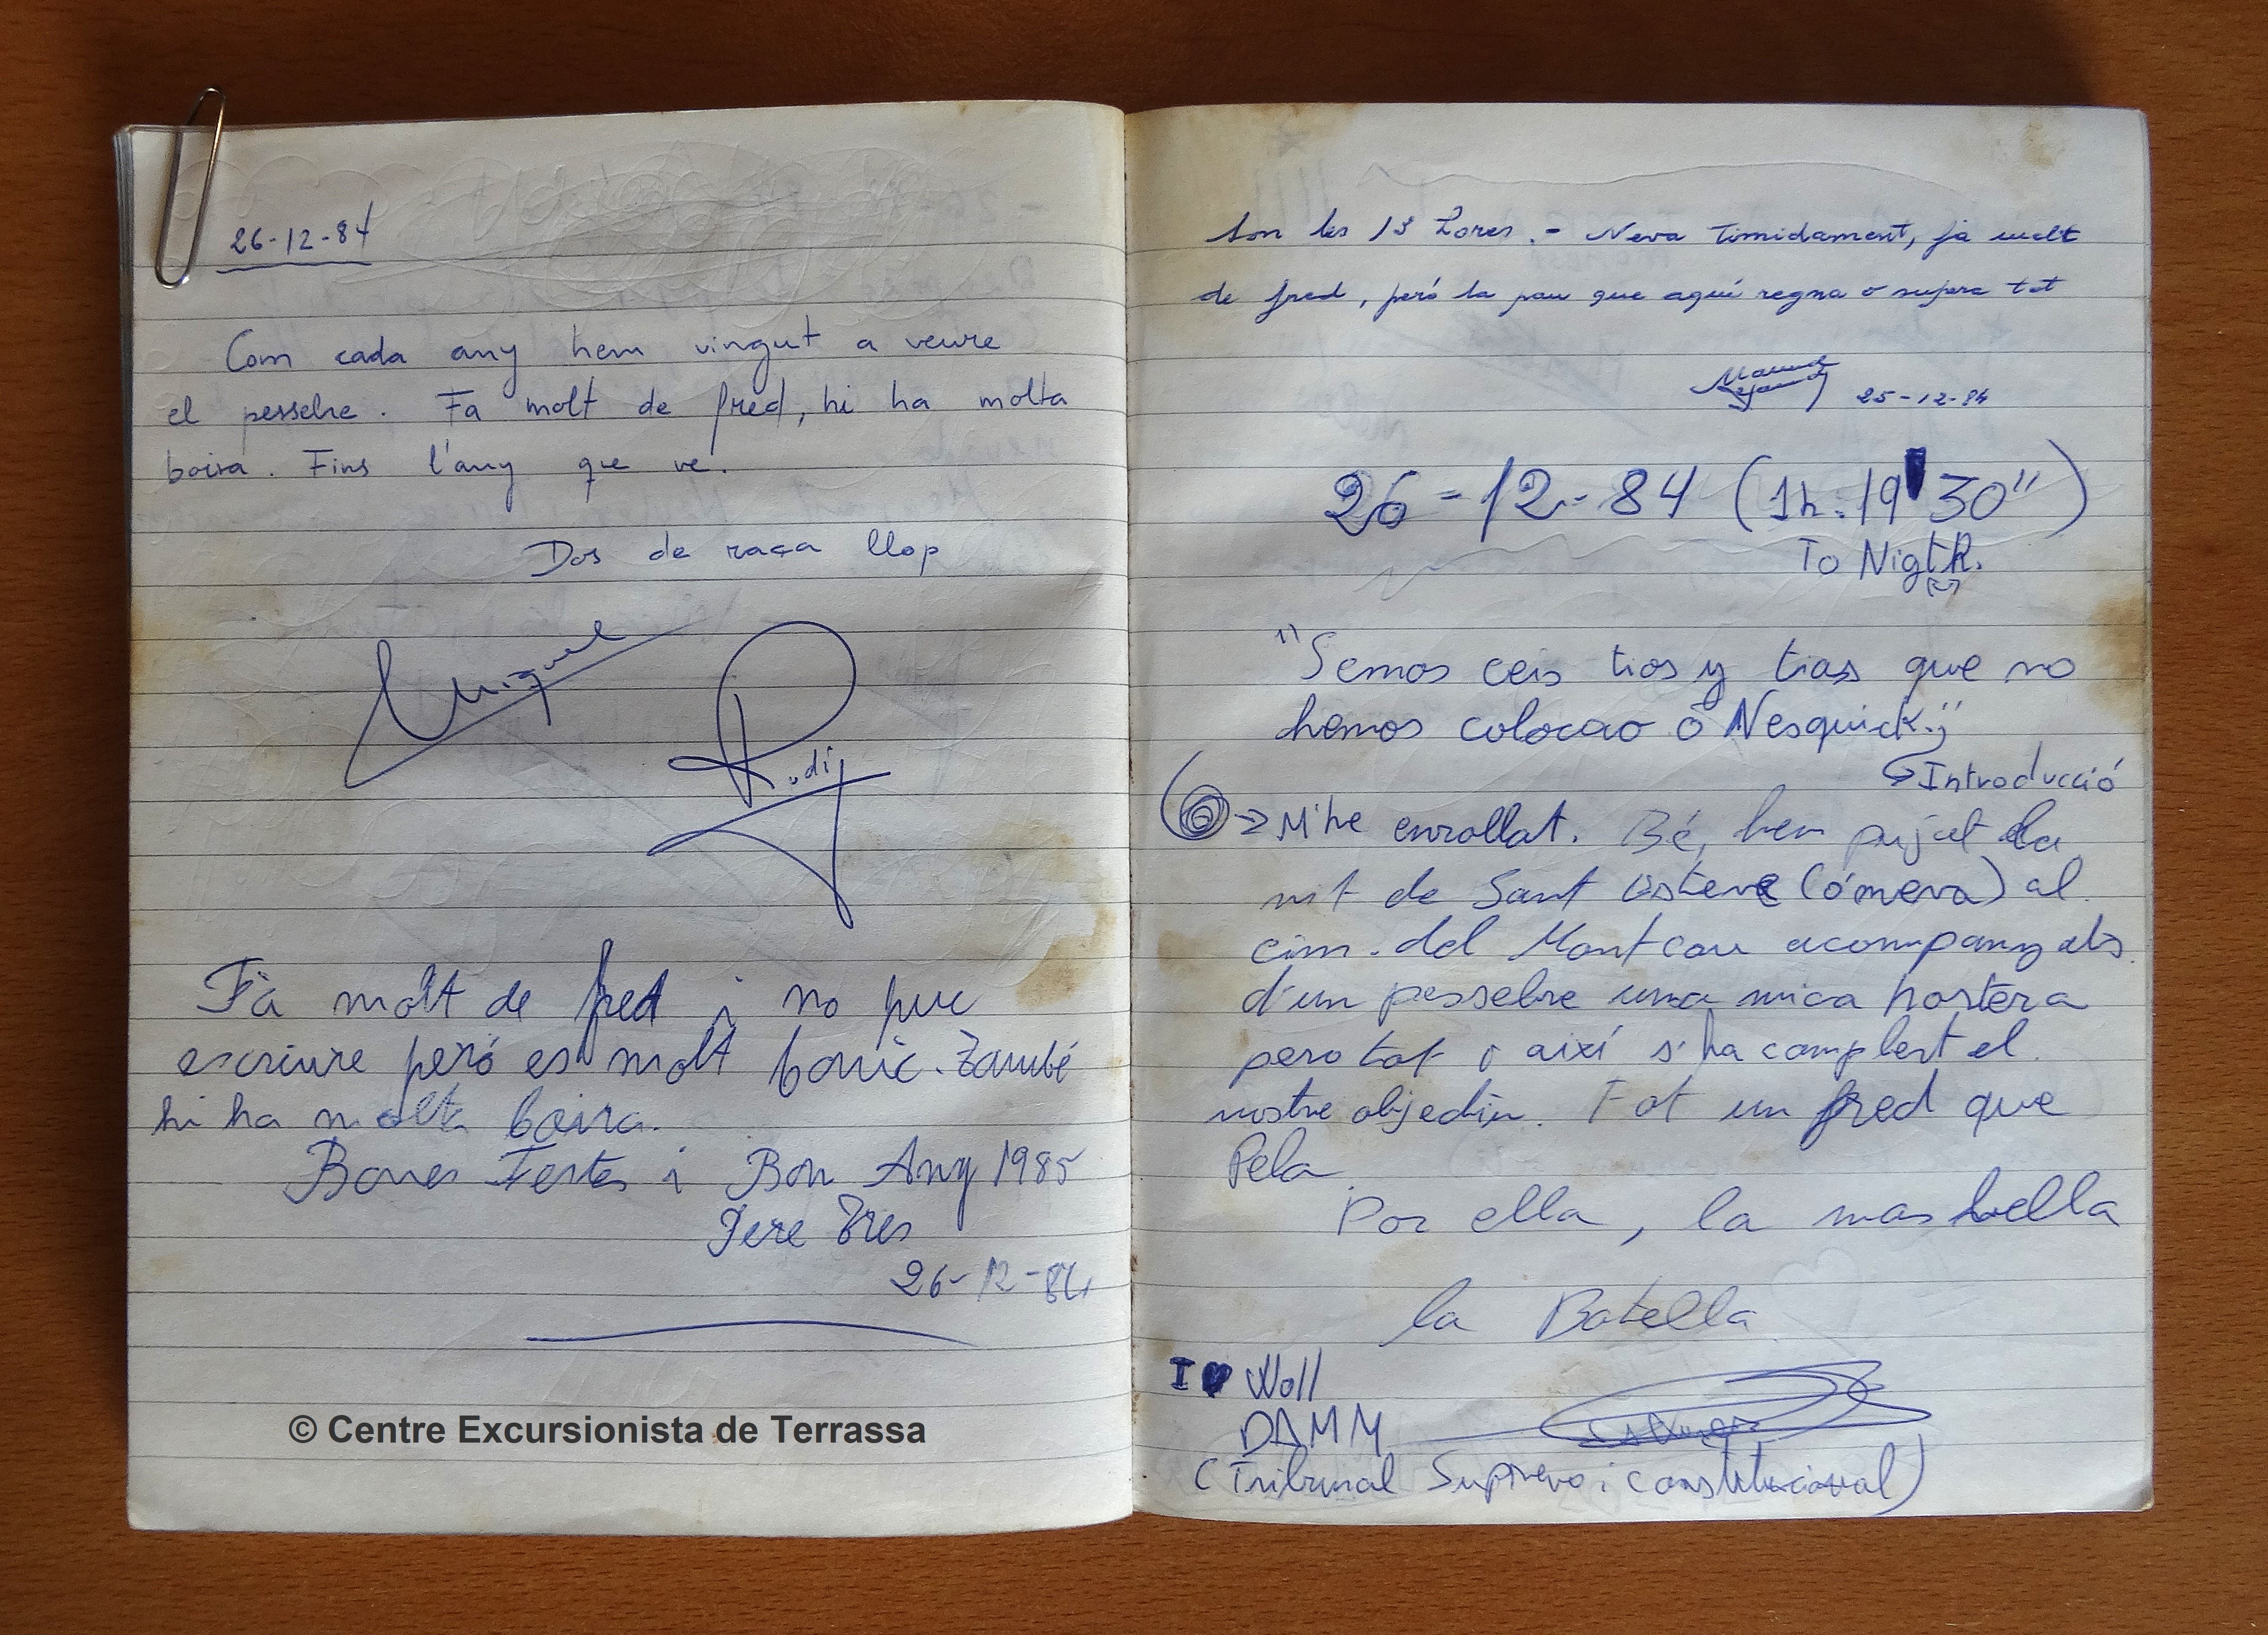 26-12-84
Com cada any hem vingut a veure
el pessebre. Fa molt de fred, hi ha molta
boira. Fins l'any que ve.
Dos de raça llop
Miquel
Rudi
Fà molt de fred i no puc
escriure però es molt bonic. També
hi ha molta boira.
Bones Festes i Bon Any 1985
Pere Tres
26-12-84
© Centre Excursionista de Terrassa
Son les 13 hores.- Neva timidament, fa molt
de fred, peró la pau que aquí regna o supera tot
25-12-84
26-12-84 (1h:19'30")
To NigtR.
"Semos ceis tios y tias que no
hemos colocao ó Nesquick."
Introducció
M'he enrollat. Bé, hem pujat la
nit de Sant Esteve (ó meva) al
cim del Montcau acompanyats
d'un pessebre una mica hortera
pero tot i així s'ha complert el
nostre objectiu. Fot un fred que
Pela.
Por ella, la mas bella
la Botella
I ♥ Woll
DAMM
(Tribunal Supremo i constitucional)